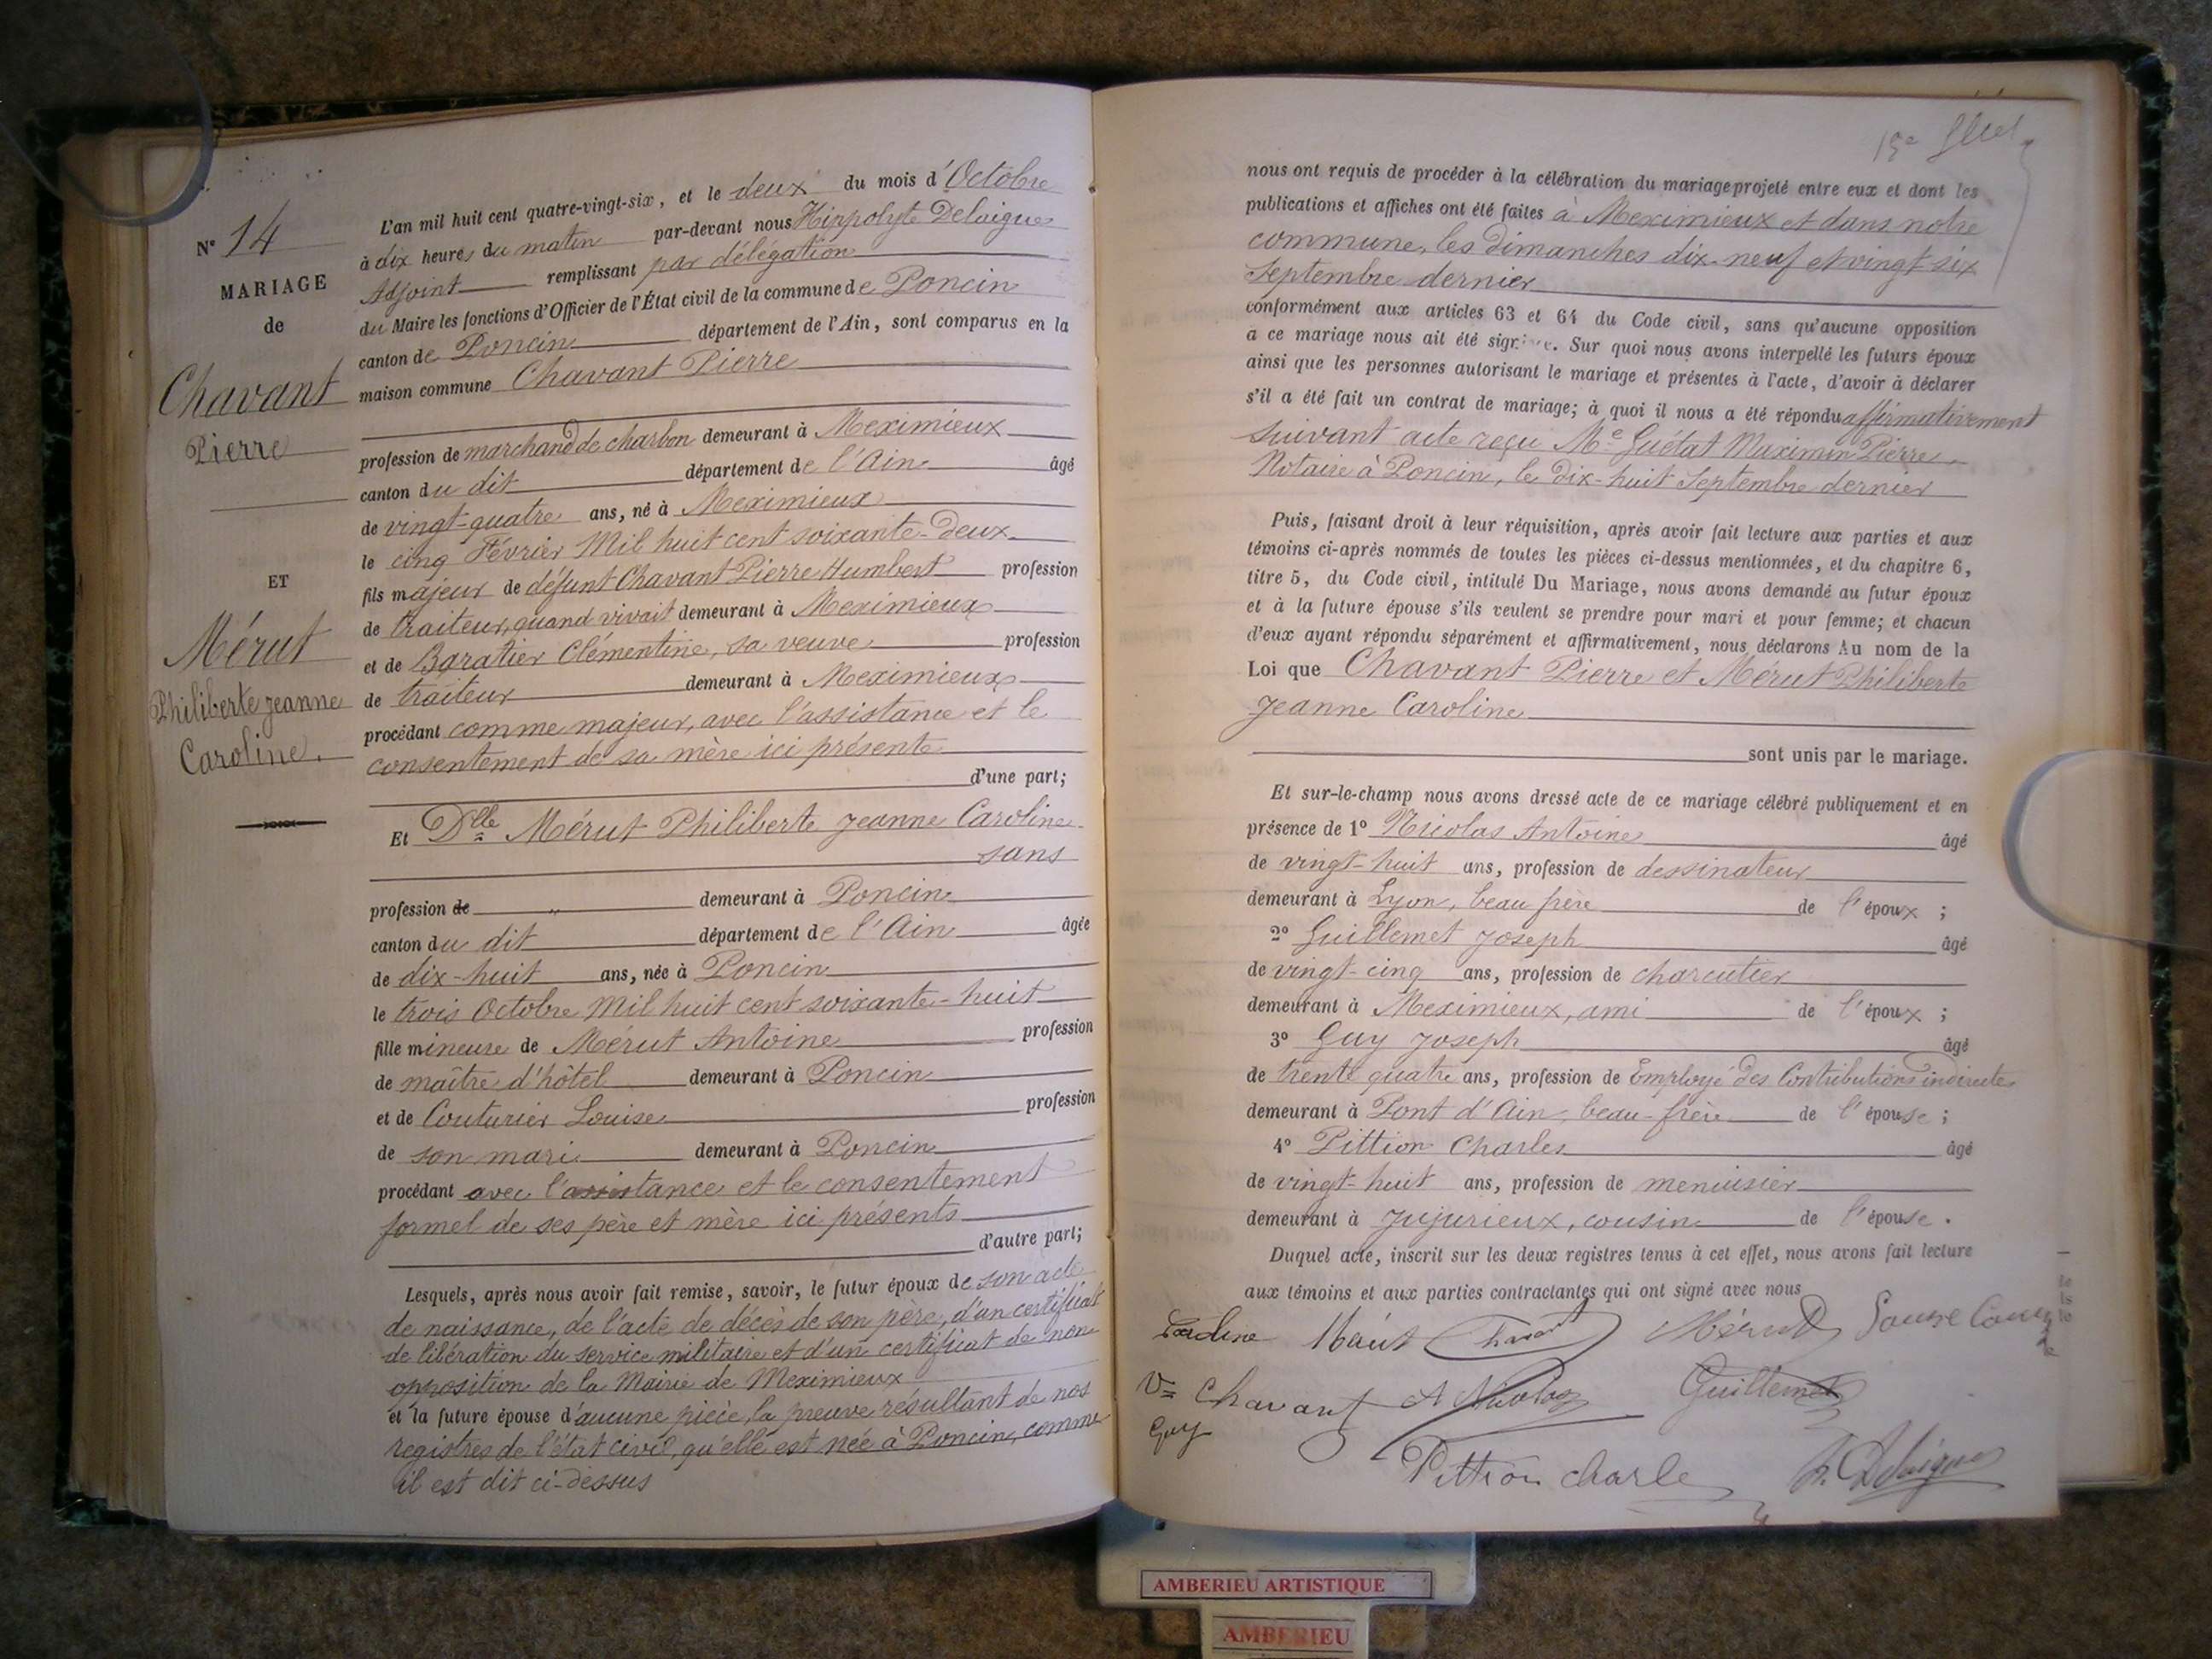 N° 14
MARIAGE
de
Chavant
Pierre
ET
Mérut
Philiberte Jeanne
Caroline.
L'an mil huit cent quatre-vingt-six, et le deux du mois d'Octobre
à dix heures du matin par-devant nous Hippolyte Delaigue
Adjoint remplissant par délégation
du Maire les fonctions d'Officier de l'État civil de la commune de Poncin
canton de Poncin département de l'Ain, sont comparus en la
maison commune Chavant Pierre
profession de marchand de charbon demeurant à Meximieux
canton du dit département de l'Ain âgé
de vingt-quatre ans, né à Meximieux
le cinq Février Mil huit cent soixante-deux
fils majeur de défunt Chavant Pierre Humbert profession
de traiteur, quand vivait demeurant à Meximieux
et de Baratier Clémentine, sa veuve profession
de traiteur demeurant à Meximieux
procédant comme majeur, avec l'assistance et le
consentement de sa mère ici présente
d'une part;
Et Dlle Mérut Philiberte Jeanne Caroline
sans
profession de " demeurant à Poncin
canton du dit département de l'Ain âgée
de dix-huit ans, née à Poncin
le trois Octobre Mil huit cent soixante-huit
fille mineure de Mérut Antoine profession
de maître d'hôtel demeurant à Poncin
et de Couturier Louise profession
de son mari demeurant à Poncin
procédant avec l'assistance et le consentement
formel de ses père et mère ici présents
d'autre part;
Lesquels, après nous avoir fait remise, savoir, le futur époux de son acte
de naissance, de l'acte de décès de son père, d'un certificat
de libération du service militaire et d'un certificat de non
opposition de la Mairie de Meximieux
et la future épouse d'aucune pièce, la preuve résultant de nos
registres de l'état civil, qu'elle est née à Poncin, comme
il est dit ci-dessus
nous ont requis de procéder à la célébration du mariage projeté entre eux et dont les
publications et affiches ont été faites à Meximieux et dans notre
commune, les dimanches dix-neuf et vingt-six
Septembre dernier
conformément aux articles 63 et 64 du Code civil, sans qu'aucune opposition
à ce mariage nous ait été signifiée. Sur quoi nous avons interpellé les futurs époux
ainsi que les personnes autorisant le mariage et présentes à l'acte, d'avoir à déclarer
s'il a été fait un contrat de mariage; à quoi il nous a été répondu affirmativement
suivant acte reçu Me Guétat Maximin Pierre,
Notaire à Poncin, le dix-huit Septembre dernier
Puis, faisant droit à leur réquisition, après avoir fait lecture aux parties et aux
témoins ci-après nommés de toutes les pièces ci-dessus mentionnées, et du chapitre 6,
titre 5, du Code civil, intitulé Du Mariage, nous avons demandé au futur époux
et à la future épouse s'ils veulent se prendre pour mari et pour femme; et chacun
d'eux ayant répondu séparément et affirmativement, nous déclarons Au nom de la
Loi que Chavant Pierre et Mérut Philiberte
Jeanne Caroline
sont unis par le mariage.
Et sur-le-champ nous avons dressé acte de ce mariage célébré publiquement et en
présence de 1° Nicolas Antoine âgé
de vingt-huit ans, profession de dessinateur
demeurant à Lyon, beau frère de l'époux ;
2° Guillemet Joseph âgé
de vingt-cinq ans, profession de charcutier
demeurant à Meximieux, ami de l'époux ;
3° Guy Joseph âgé
de trente quatre ans, profession de Employé des Contributions indirectes
demeurant à Pont d'Ain, beau-frère de l'épouse ;
4° Pittion Charles âgé
de vingt-huit ans, profession de menuisier
demeurant à Jujurieux, cousin de l'épouse.
Duquel acte, inscrit sur les deux registres tenus à cet effet, nous avons fait lecture
aux témoins et aux parties contractantes qui ont signé avec nous
Caroline Mérut Chavant Mérut
Ve Chavant A Nicolas Guillemet
Guy
Pittion Charle H. Delaigue
AMBERIEU ARTISTIQUE
AMBERIEU